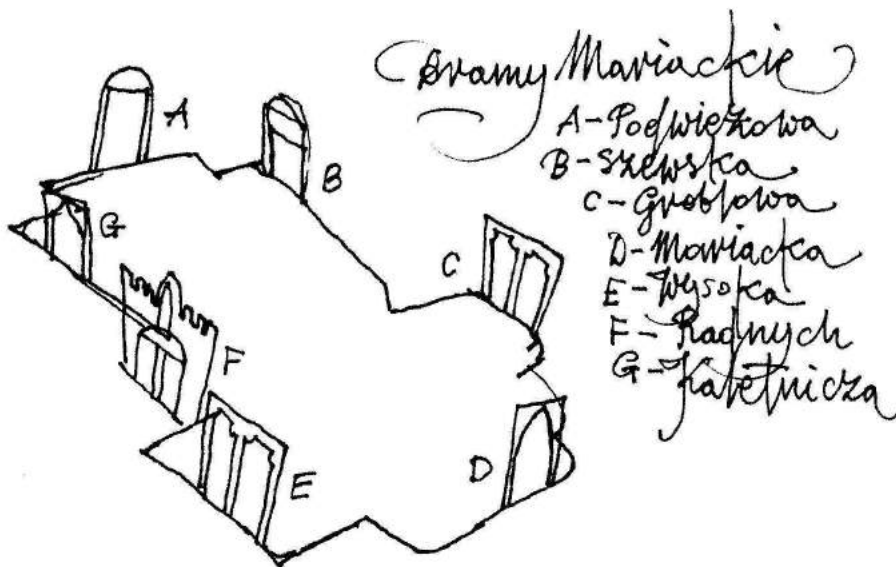 Bramy Mariackie
A-Podwieżowa
B-Szewska
C-Groblowa
D-Mariacka
E-Wysoka
F-Radnych
G-Kaletnicza
A
B
G
C
F
E
D